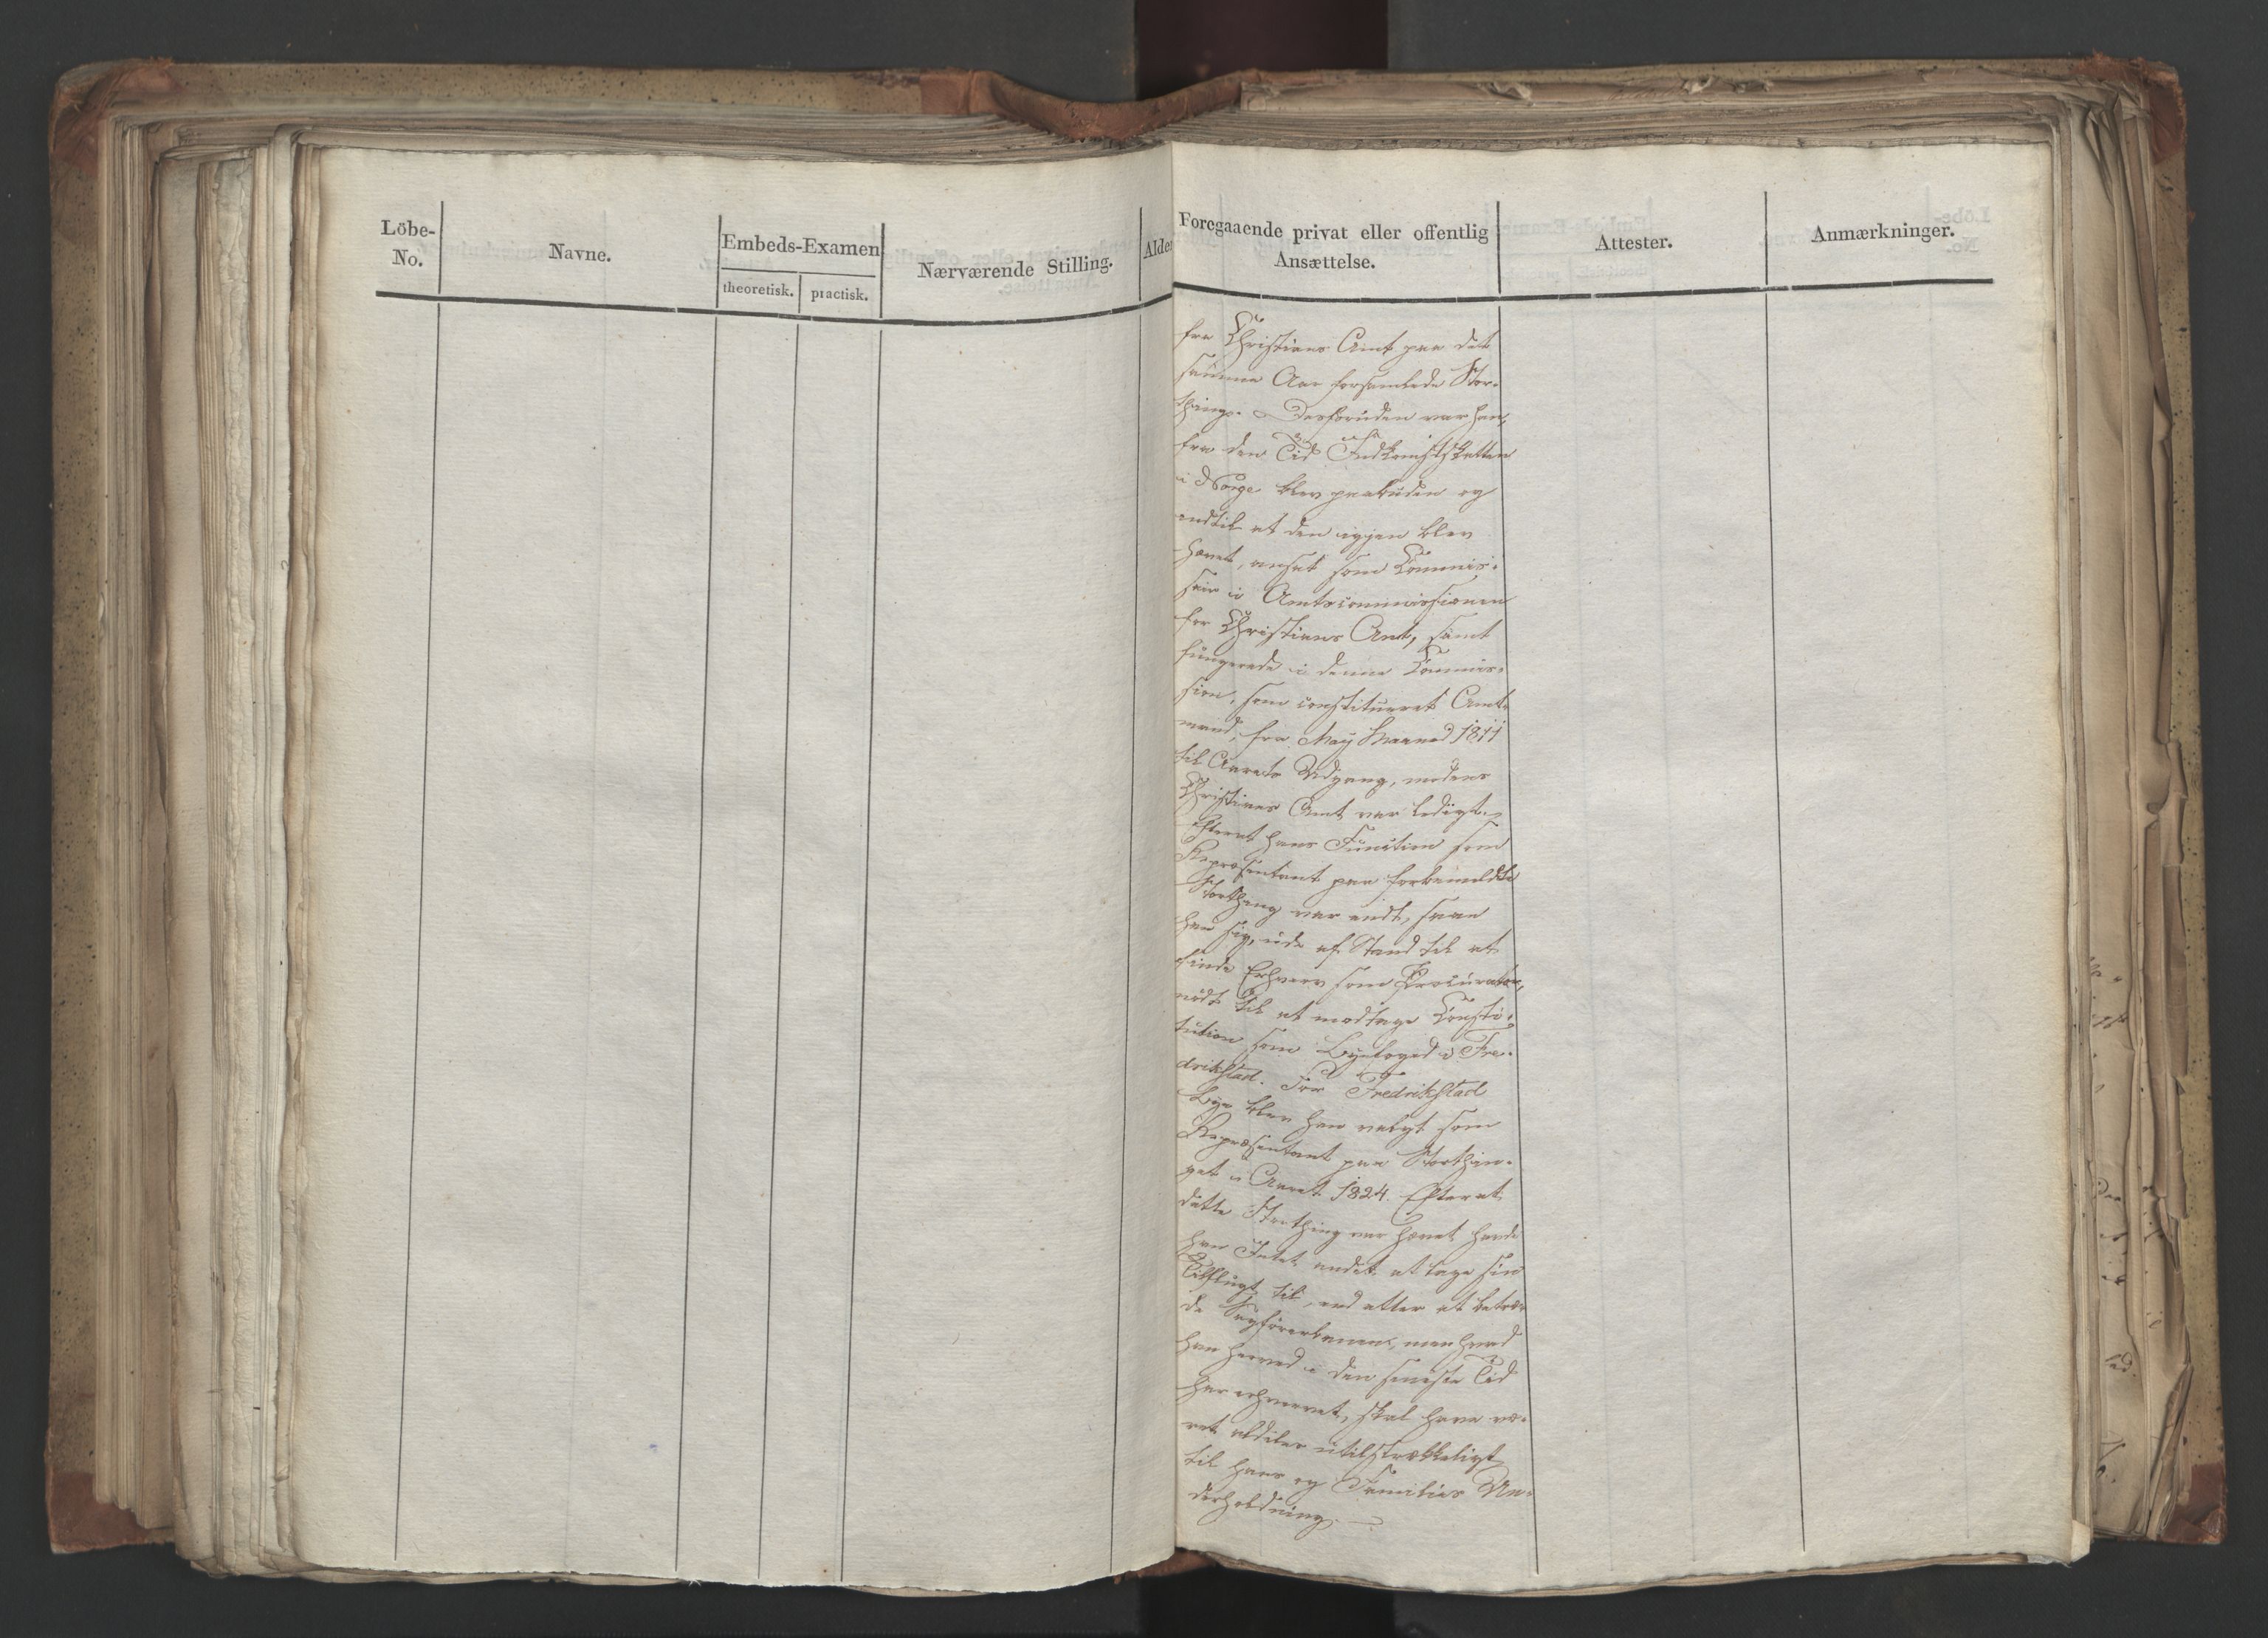 Löbe-
No.
Navne.
Embeds-Examen
theoretisk.
practisk.
Nærværende Stilling.
Alder
Foregaaende privat eller offentlig
Ansættelse.
Attester.
Anmærkninger.
fra Christians Amt paa det
samme Aar forsamlede Stor-
thing. Desforuden var han,
fra den Tid Indkomstskatten
i Norge blev paabuden og
indtil at den igjen blev
hævet, ansat som Commis-
sair i Amtscommissionen
for Christians Amt, samt
fungerede i denne Commis-
sion, som constitueret Amt-
mand, fra May Maaned 1811
til Aarets Udgang, medens
Christians Amt var ledigt.
Efterat hans Function som
Repræsentant paa forbemeldte
Storthing var endt, saae
han sig, ude af Stand til at
finde Erhverv som Procurator,
nödt til at modtage Consti-
tution som Byefoged i Fre-
drikstad. For Fredrikstad
Bye blev han valgt som
Repræsentant paa Storthin-
get i Aaret 1824. Efterat
dette Storthing var hævet havde
han Intet andet at tage sin
Tilflugt til, end atter at betræ-
de Sagförerbanen, men hvad
han herved i den seneste Tid
har erhvervet, skal have væ-
ret aldeles utilstrækkeligt
til hans og Families Un-
derholdning.